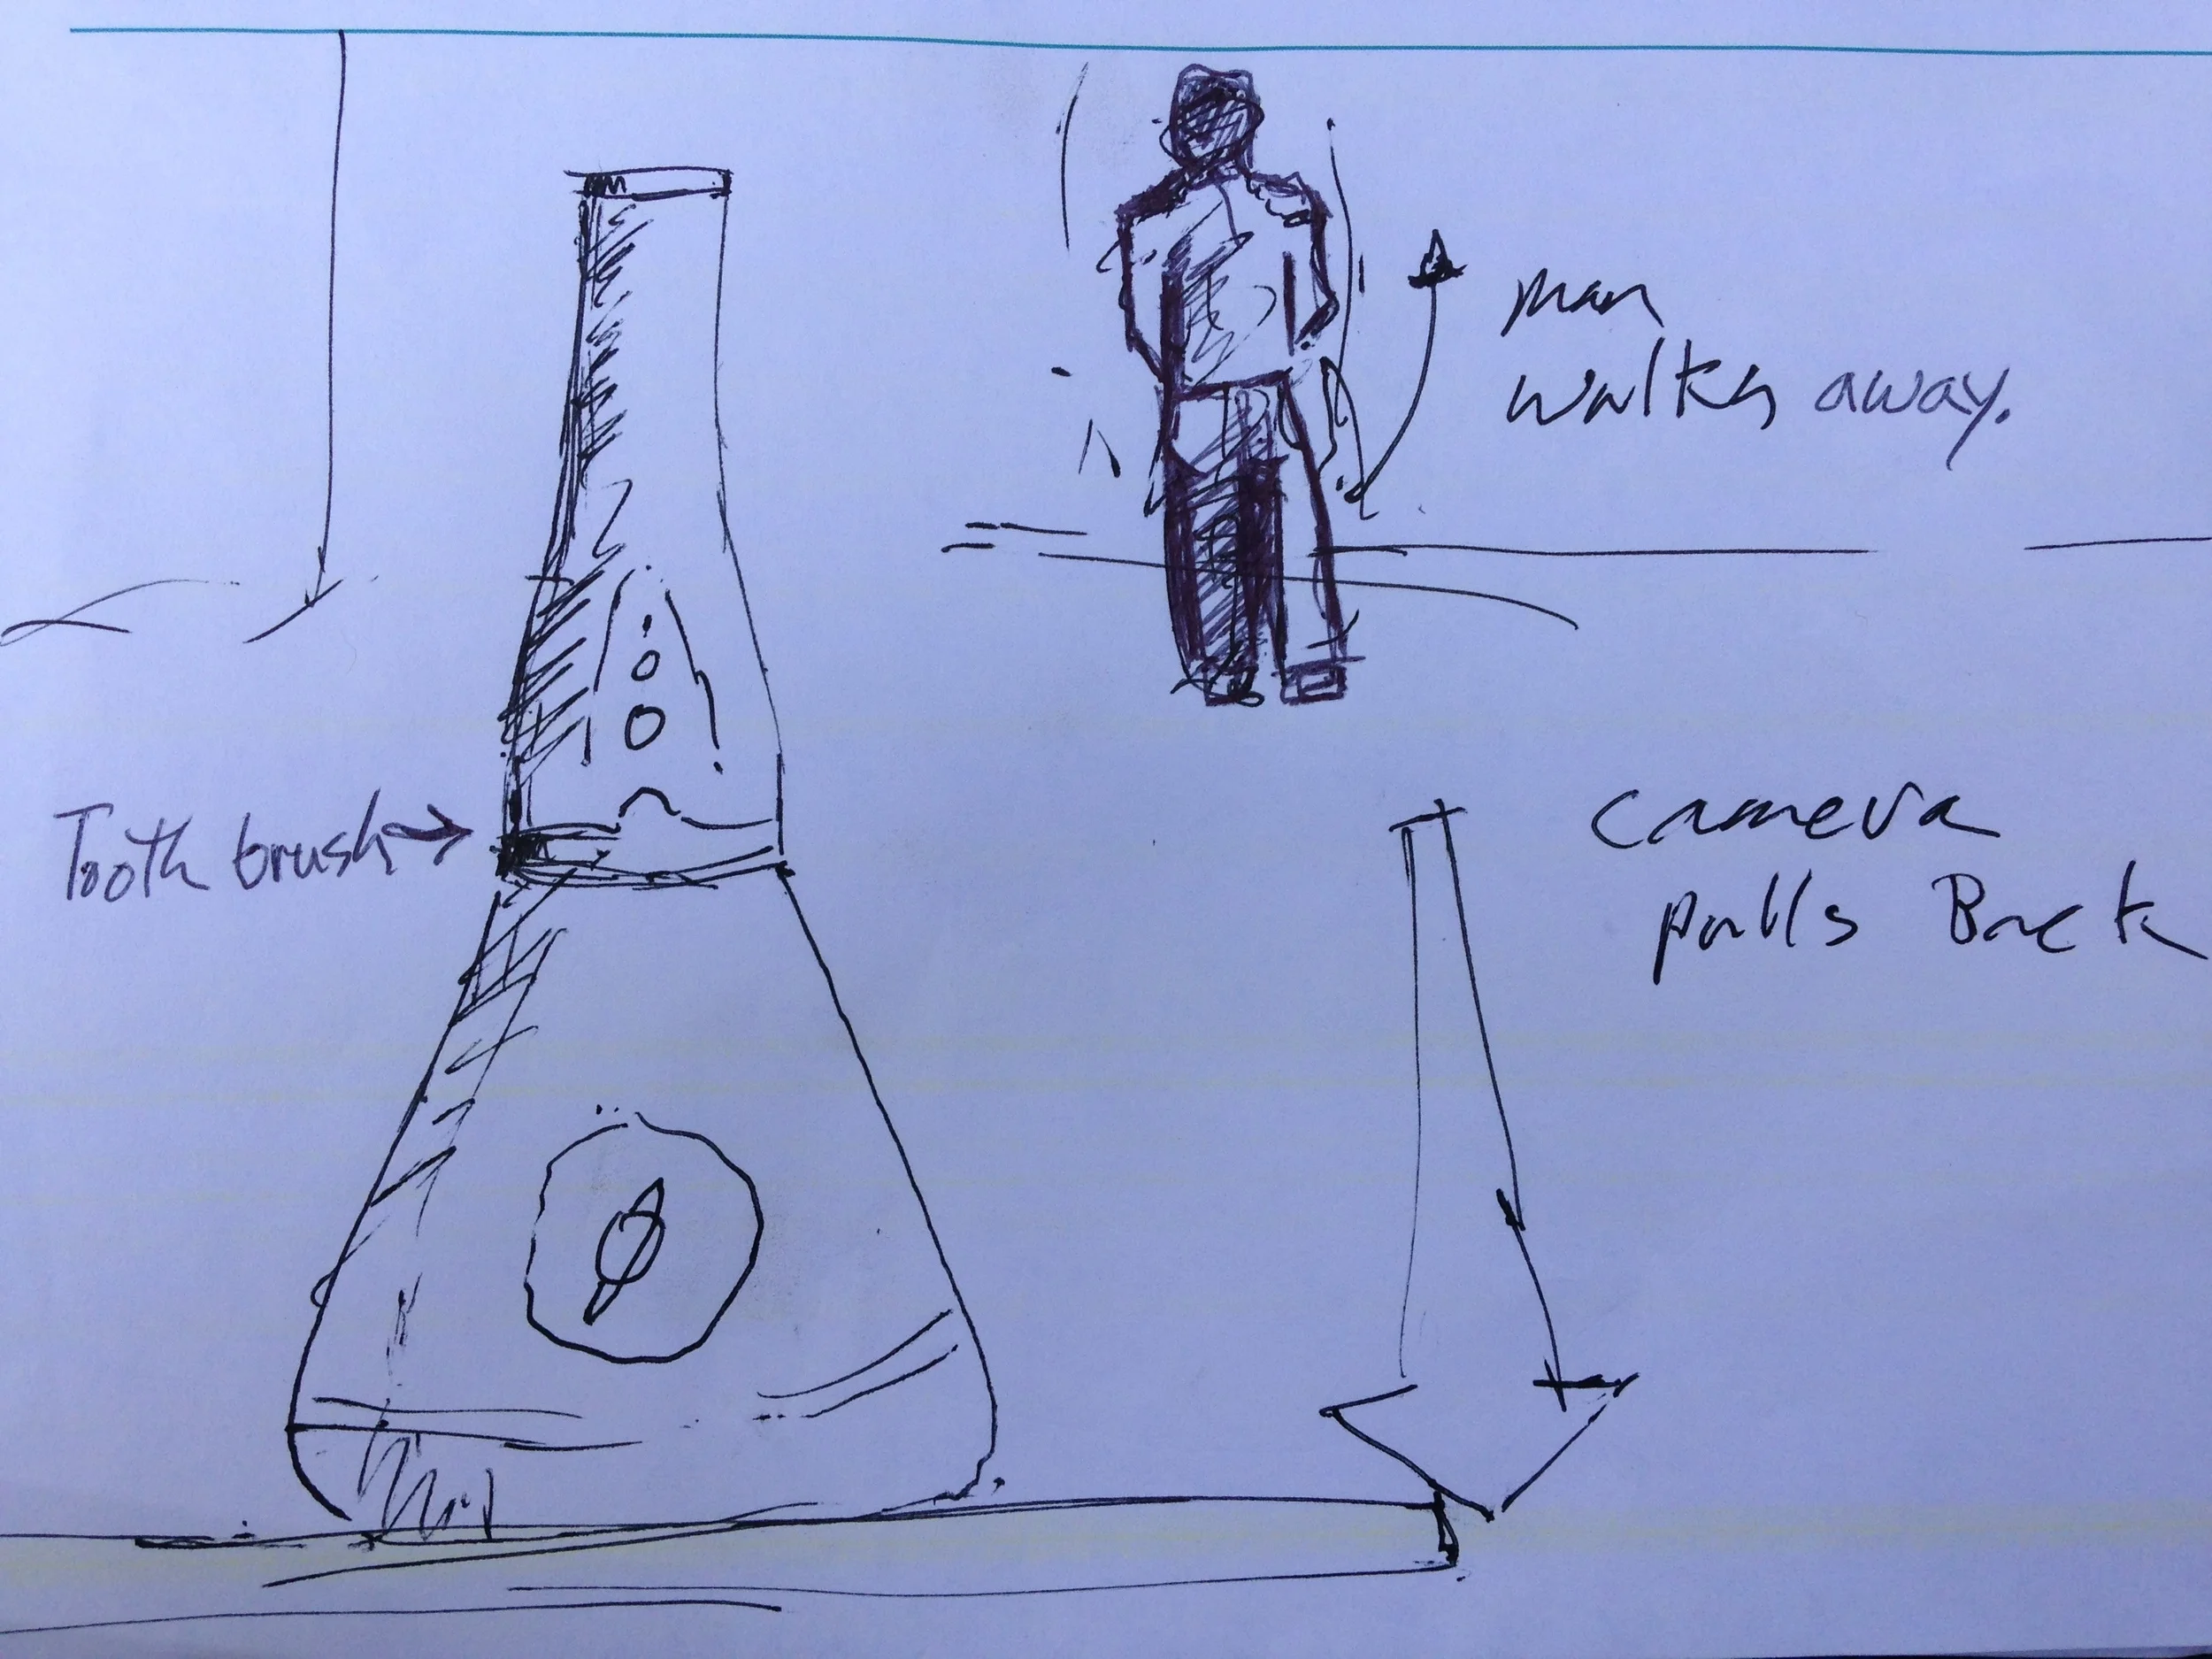 man
walks away.
Tooth brush
camera
pulls Back